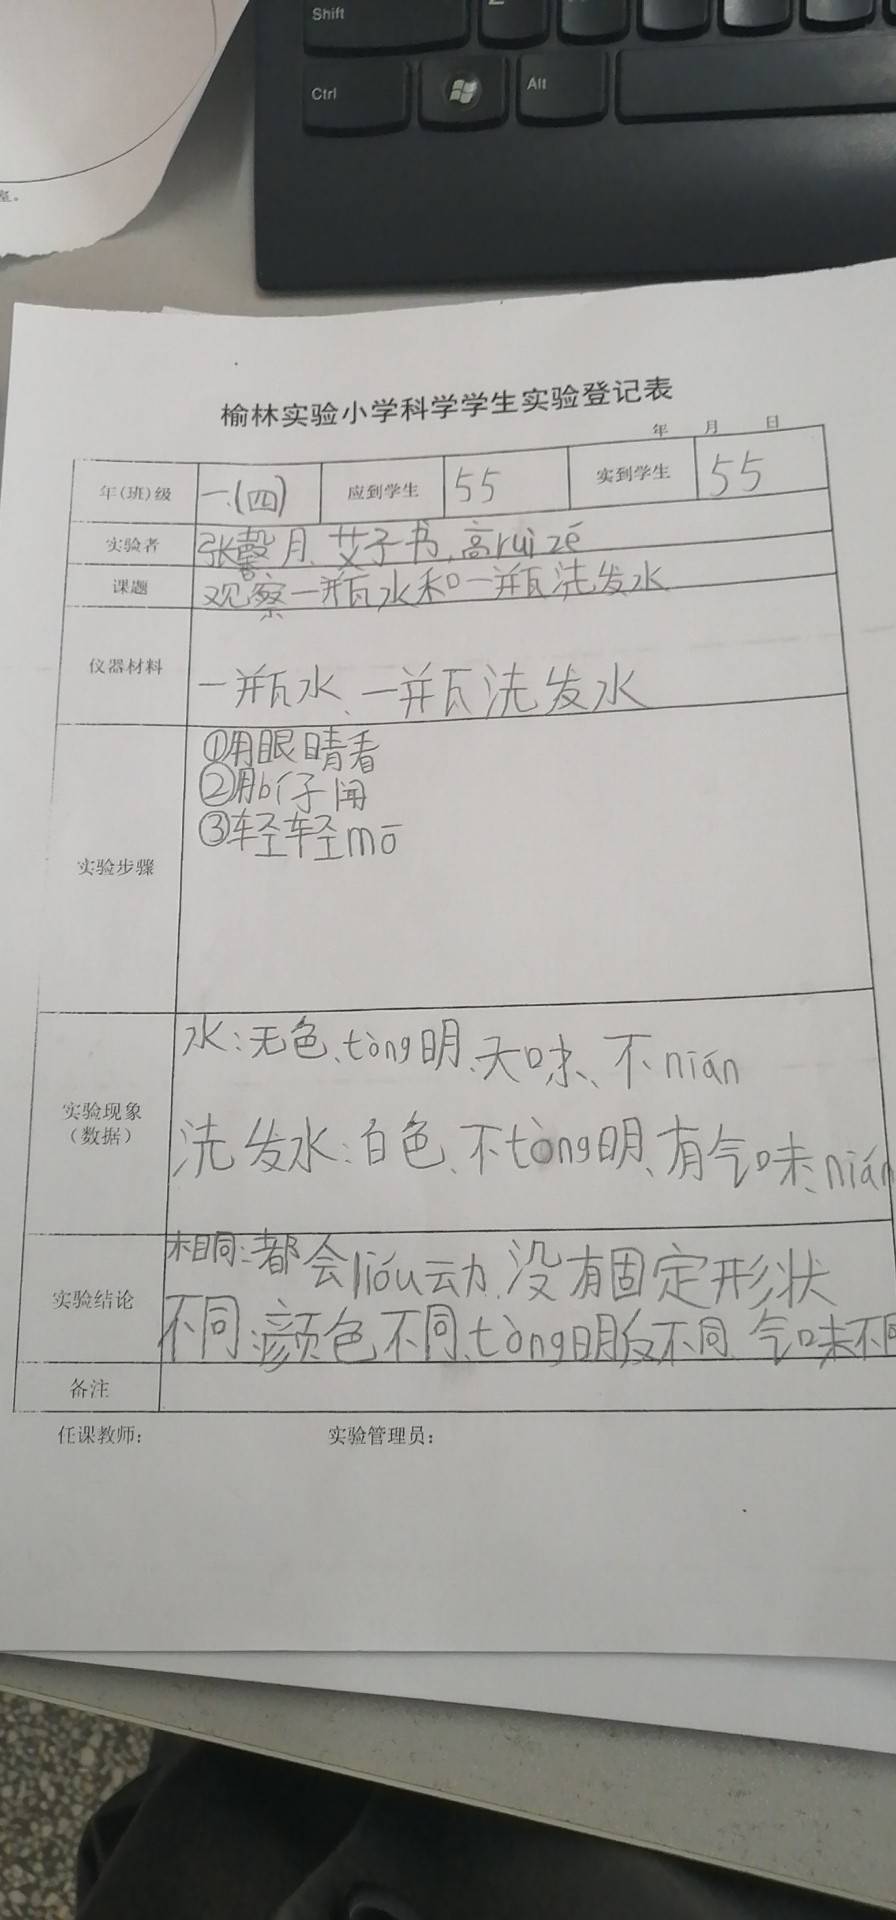 Shift
Z
Ctrl
Alt
室。
榆林实验小学科学学生实验登记表
年 月 日
年(班)级 一.(四) 应到学生 55 实到学生 55
实验者 张馨月、艾子书、高ruì zé
课题 观察一瓶水和一瓶洗发水
仪器材料 一瓶水、一瓶洗发水
①用眼睛看
②用bí子闻
③轻轻mō
实验步骤
水:无色、tòng明、无味、不nián
实验现象
(数据)
洗发水:白色、不tòng明、有气味、nián
相同:都会lióu动、没有固定形状
实验结论
不同:颜色不同、tòng明度不同、气味不同
备注
任课教师: 实验管理员: